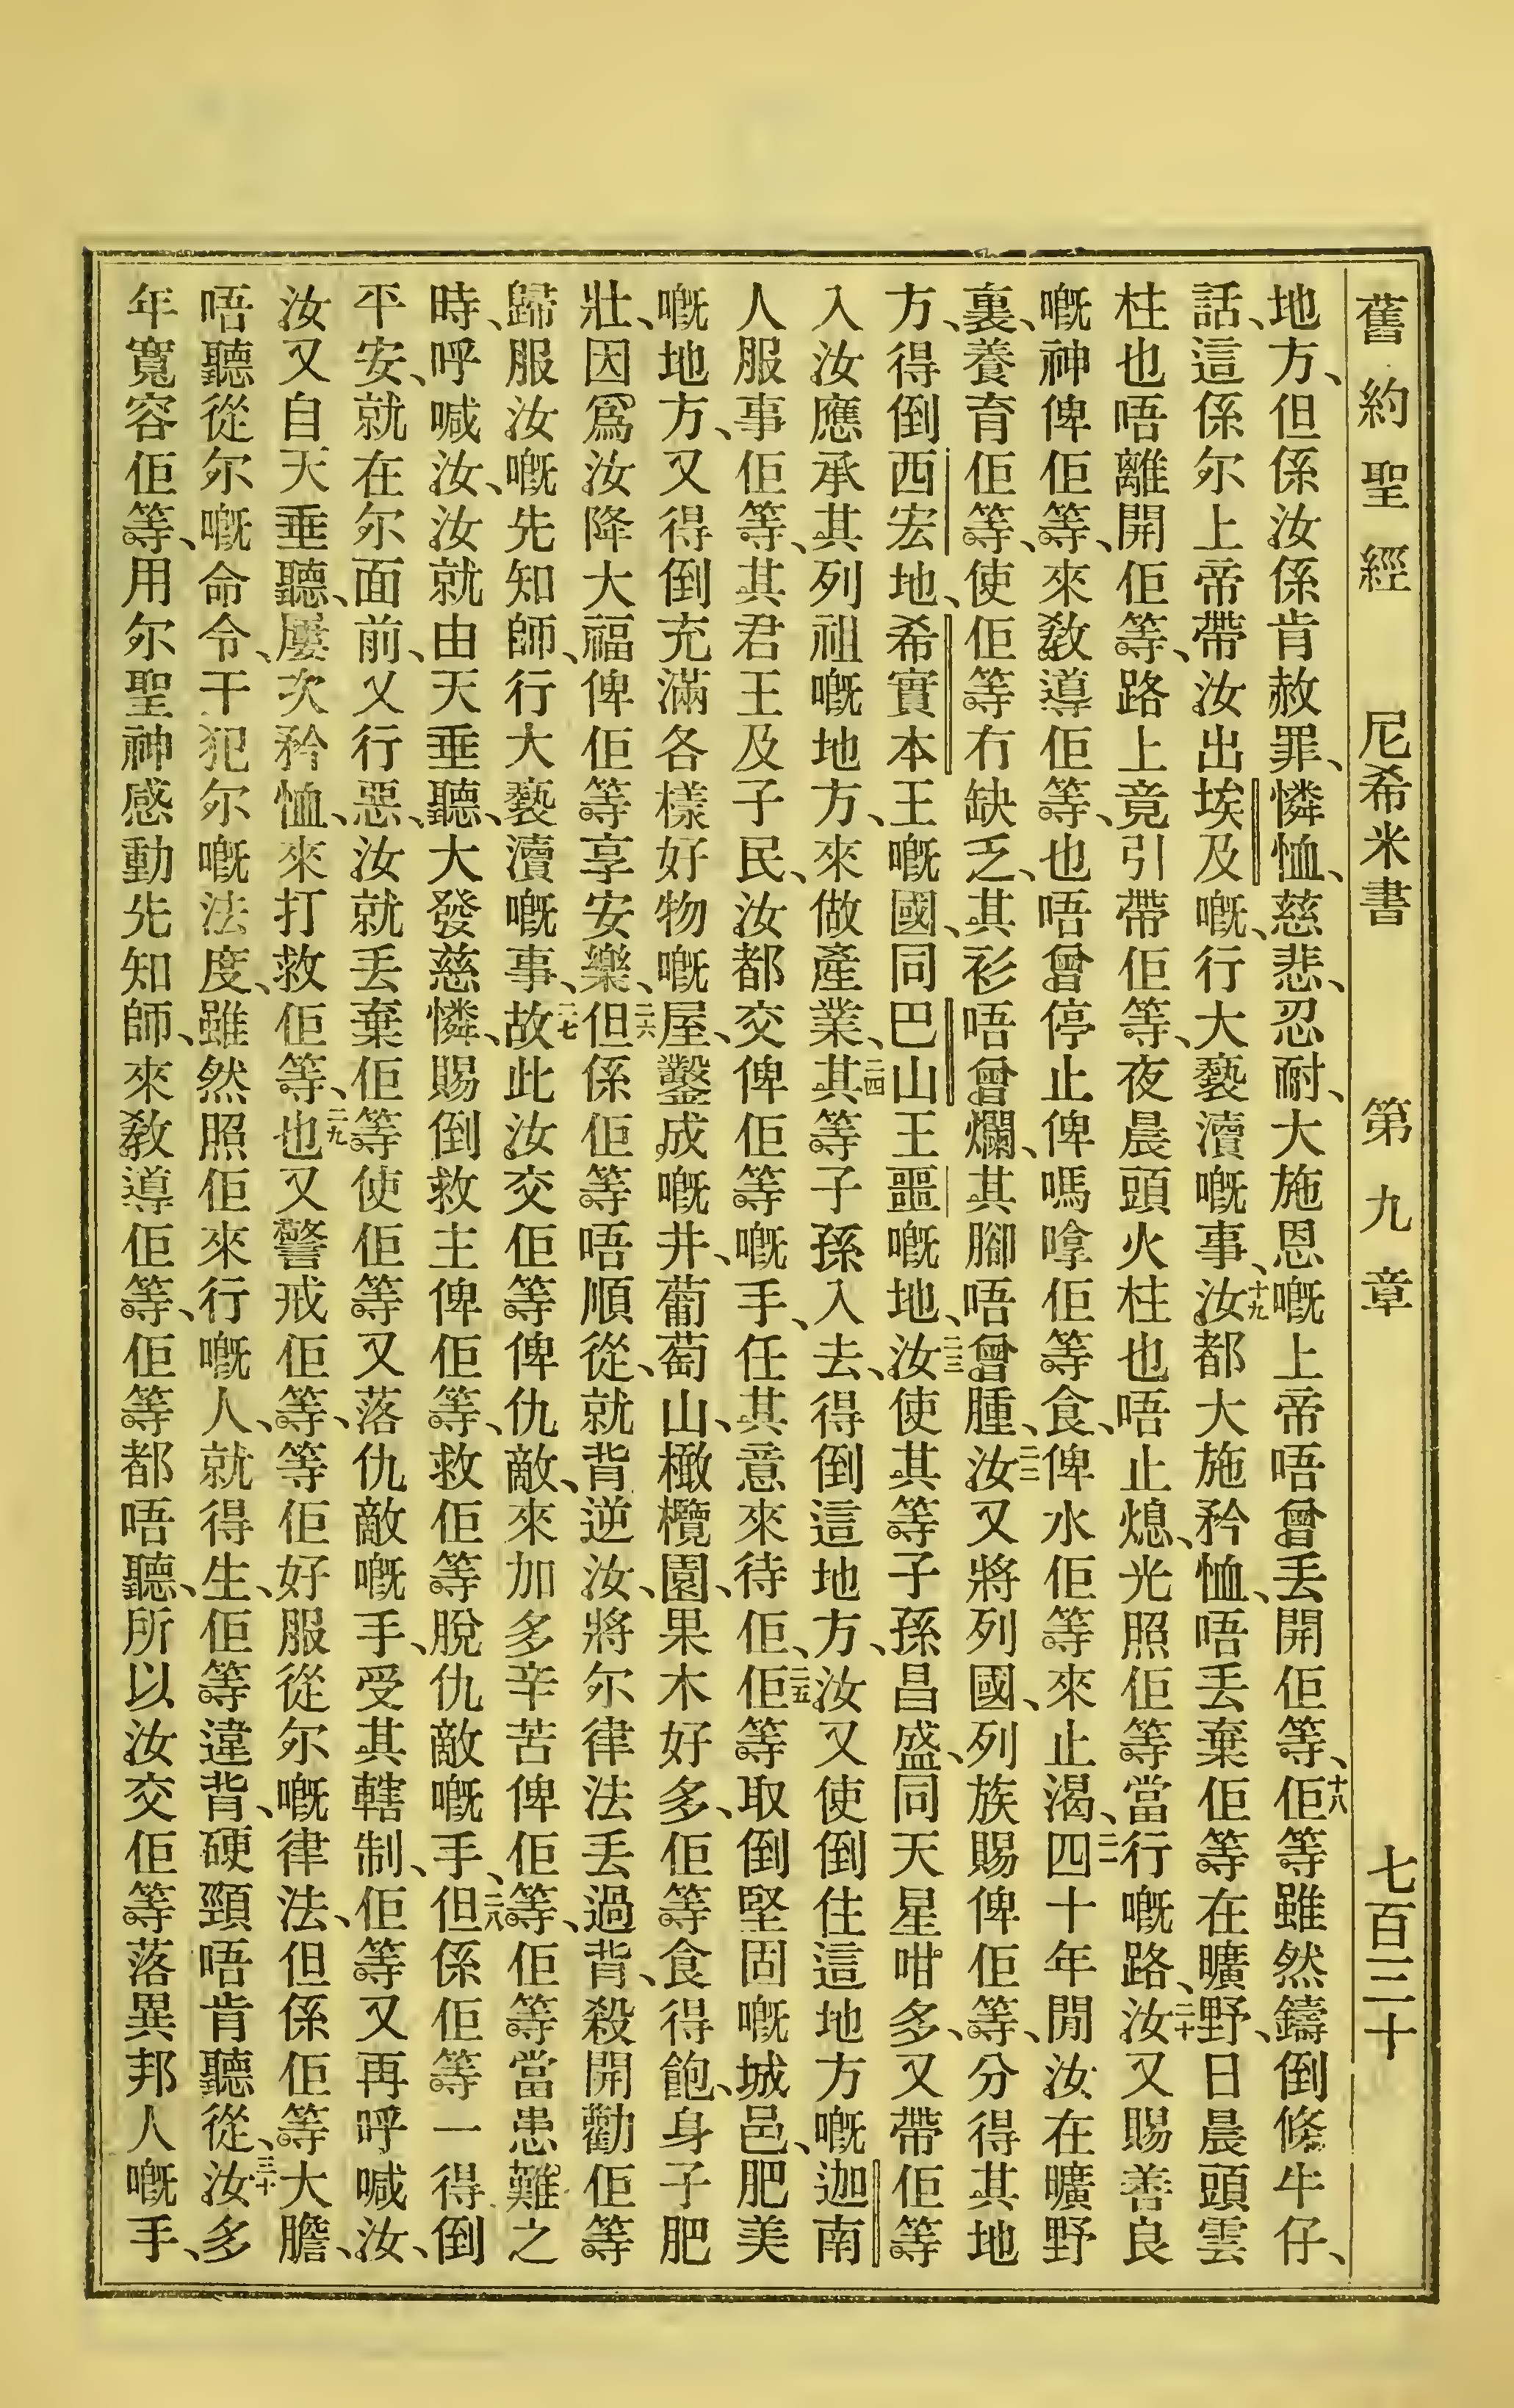 舊約聖經 尼希米書 第九章 七百三十
地方、但係汝係肯赦罪、憐恤、慈悲、忍耐、大施恩嘅上帝唔曾丟開佢等、十八佢等雖然鑄倒條牛仔、
話、這係尔上帝帶汝出埃及嘅、行大褻瀆嘅事、十九汝都大施矜恤、唔丟棄佢等在曠野、日晨頭雲
柱也唔離開佢等、路上竟引帶佢等、夜晨頭火柱也唔止熄、光照佢等當行嘅路、二十汝又賜善良
嘅神俾佢等、來教導佢等、也唔曾停止俾嗎嗱佢等食、俾水佢等來止渴、二一四十年間汝在曠野
裏、養育佢等、使佢等冇缺乏、其衫唔曾爛、其腳唔曾腫、二二汝又將列國、列族賜俾佢等、分得其地
方、得倒西宏地、希實本王嘅國、同巴山王噩嘅地、二三汝使其等子孫昌盛、同天星咁多、又帶佢等
入汝應承其列祖嘅地方、來做產業、二四其等子孫入去、得倒這地方、汝又使倒住這地方嘅迦南
人服事佢等、其君王及子民、汝都交俾佢等嘅手、任其意來待佢、二五佢等取倒堅固嘅城邑、肥美
嘅地方、又得倒充滿各樣好物嘅屋、鑿成嘅井、葡萄山、橄欖園、果木好多、佢等食得飽、身子肥
壯、因爲汝降大福俾佢等享安樂、二六但係佢等唔順從、就背逆汝、將尔律法丟過背、殺開勸佢等
歸服汝嘅先知師、行大褻瀆嘅事、二七故此汝交佢等俾仇敵、來加多辛苦俾佢等、佢等當患難之
時、呼喊汝、汝就由天垂聽、大發慈憐、賜倒救主俾佢等、救佢等脫仇敵嘅手、二八但係佢等一得倒
平安、就在尔面前、又行惡、汝就丟棄佢等使佢等又落仇敵嘅手、受其轄制、佢等又再呼喊汝、
汝又自天垂聽、屢次矜恤、來打救佢等、二九也又警戒佢等、等佢好服從尔嘅律法、但係佢等大膽、
唔聽從尔嘅命令、干犯尔嘅法度、雖然照佢來行嘅人、就得生、佢等違背、硬頸唔肯聽從、三十汝多
年寬容佢等、用尔聖神感動先知師、來教導佢等、佢等都唔聽、所以汝交佢等落異邦人嘅手、